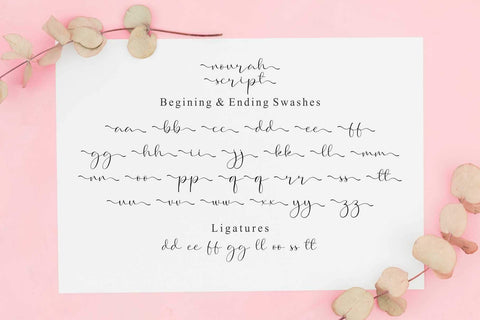 nourah
script
Begining & Ending Swashes
aa bb cc dd ee ff
gg hh ii jj kk ll mm
nn oo pp qq rr ss tt
uu vv ww xx yy zz
Ligatures
dd ee ff gg ll oo ss tt